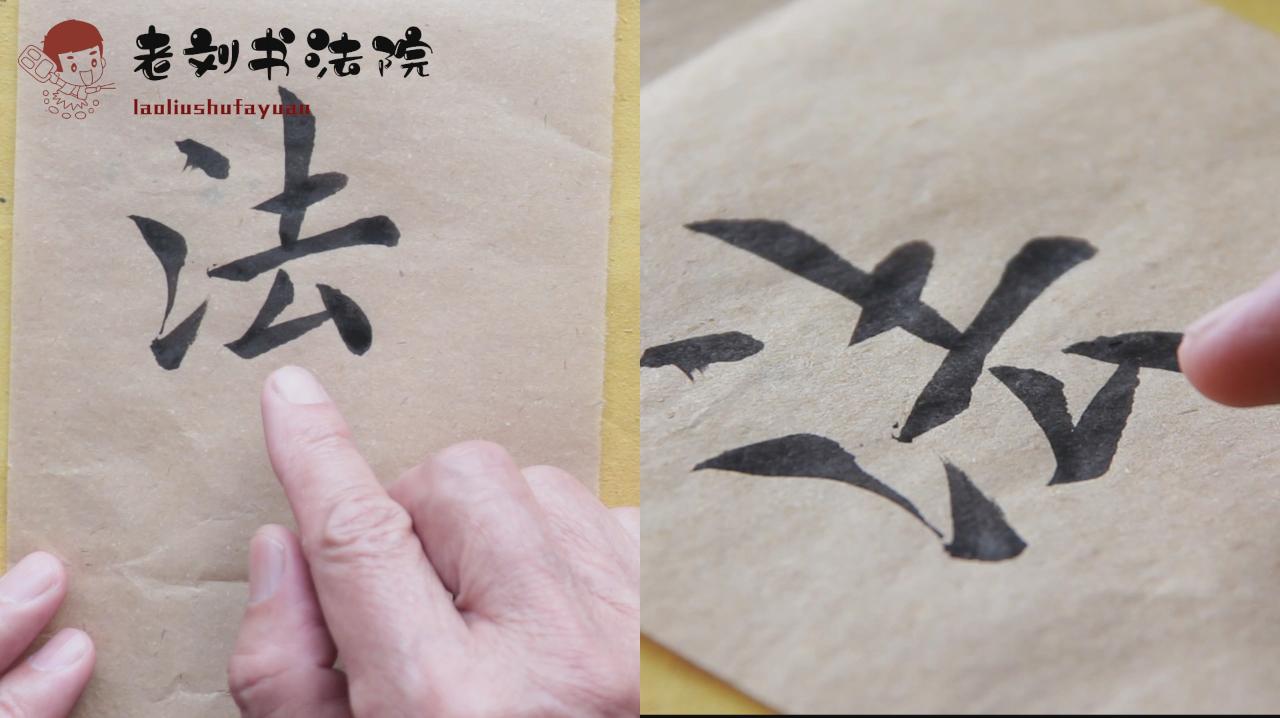 老刘书法院
laoliushufayuan
法
法